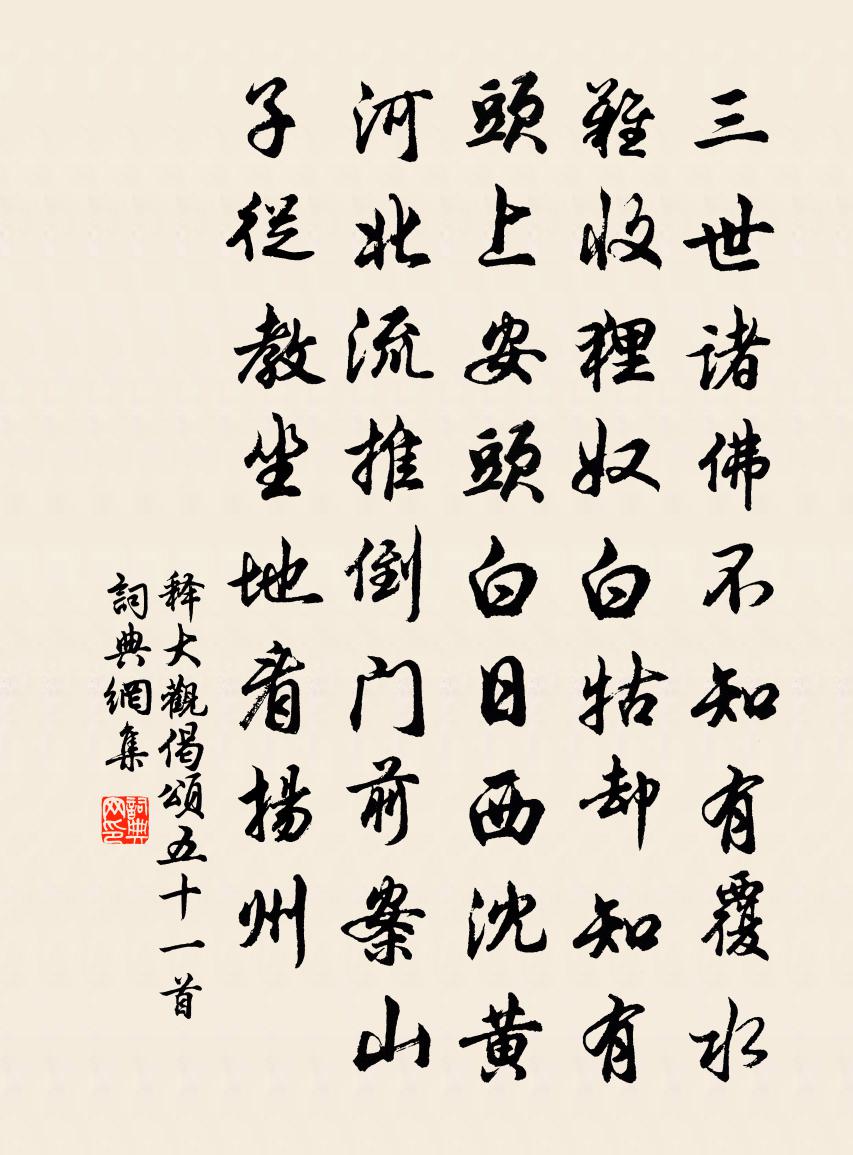 三世诸佛不知有覆水
難收狸奴白牯却知有
頭上安頭白日西沈黄
河北流推倒门前案山
子從教坐地看揚州
释大觀偈頌五十一首
詞典網集
詞典网印